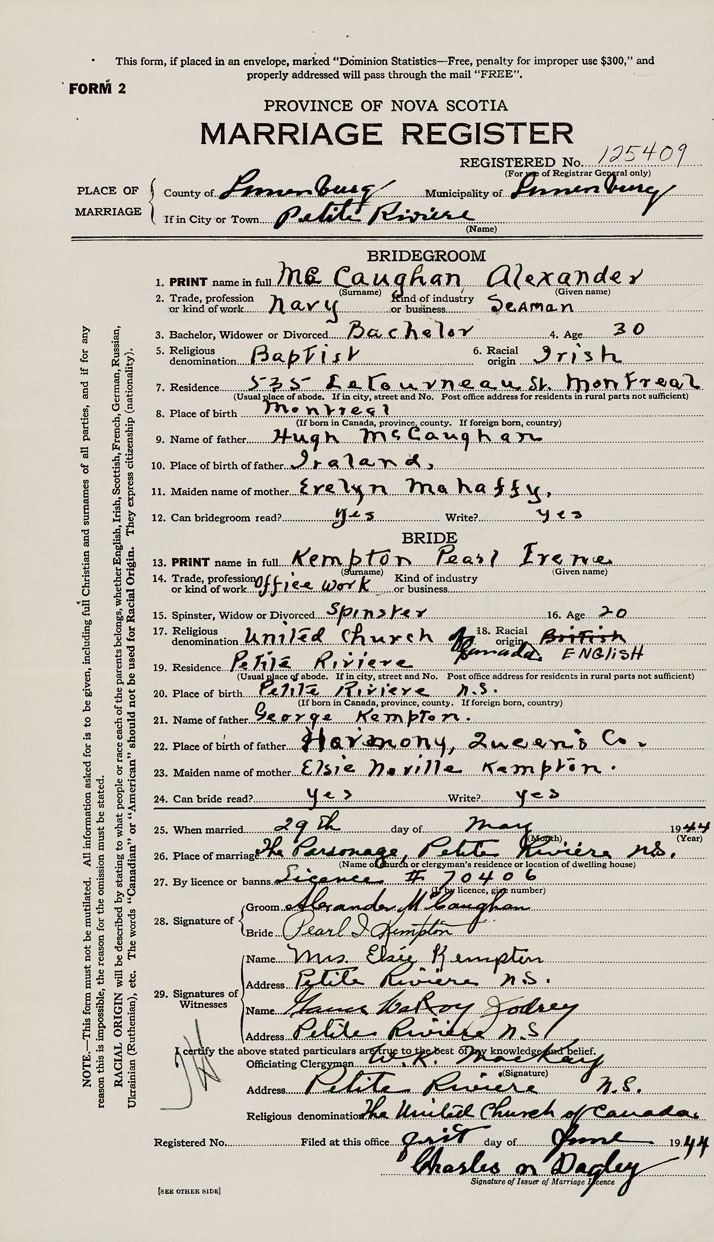 This form, if placed in an envelope, marked "Dominion Statistics—Free, penalty for improper use $300," and
properly addressed will pass through the mail "FREE".
FORM 2
PROVINCE OF NOVA SCOTIA
MARRIAGE REGISTER
REGISTERED No. 125409
(For use of Registrar General only)
PLACE OF MARRIAGE
County of Lunenburg Municipality of Lunenburg
If in City or Town Petite Riviere
(Name)
BRIDEGROOM
1. PRINT name in full McCaughan Alexander
(Surname) (Given name)
2. Trade, profession or kind of work Navy Kind of industry or business Seaman
3. Bachelor, Widower or Divorced Bachelor 4. Age 30
5. Religious denomination Baptist 6. Racial origin Irish
7. Residence 535 LeTourneau St. Montreal
(Usual place of abode. If in city, street and No. Post office address for residents in rural parts not sufficient)
8. Place of birth Montreal
(If born in Canada, province, county. If foreign born, country)
9. Name of father Hugh McCaughan
10. Place of birth of father Iraland,
11. Maiden name of mother Evelyn Mahaffy,
12. Can bridegroom read? yes Write? yes
BRIDE
13. PRINT name in full Kempton Pearl Irene
(Surname) (Given name)
14. Trade, profession or kind of work office work Kind of industry or business
15. Spinster, Widow or Divorced Spinster 16. Age 20
17. Religious denomination United Church of Canada 18. Racial origin British ENGLISH
19. Residence Petite Riviere
(Usual place of abode. If in city, street and No. Post office address for residents in rural parts not sufficient)
20. Place of birth Petite Riviere N.S.
(If born in Canada, province, county. If foreign born, country)
21. Name of father George Kempton.
22. Place of birth of father Harmony, Queen's Co.
23. Maiden name of mother Elsie Neville Kempton.
24. Can bride read? yes Write? yes
25. When married 29th day of May 1944
(Month) (Year)
26. Place of marriage The Parsonage, Petite Riviere N.S.
(Name of church or clergyman's residence or location of dwelling house)
27. By licence or banns Licence # 70406
(If by licence, give number)
28. Signature of
Groom Alexander McCaughan
Bride Pearl I. Kempton
29. Signatures of Witnesses
Name Mrs. Elsie Kempton
Address Petite Riviere N.S.
Name Jodrey
Address Petite Riviere N.S.
I certify the above stated particulars are true to the best of my knowledge and belief.
Officiating Clergyman W. R. MacKay
(Signature)
Address Petite Riviere N.S.
Religious denomination The United Church of Canada.
Registered No. Filed at this office first day of June 1944
Charles M Dagley
Signature of Issuer of Marriage Licence
[SEE OTHER SIDE]
NOTE.—This form must not be mutilated. All information asked for is to be given, including full Christian and surnames of all parties, and if for any
reason this is impossible, the reason for the omission must be stated.
RACIAL ORIGIN will be described by stating to what people or race each of the parents belongs, whether English, Irish, Scottish, French, German, Russian,
Ukrainian (Ruthenian), etc. The words "Canadian" or "American" should not be used for Racial Origin. They express citizenship (nationality).